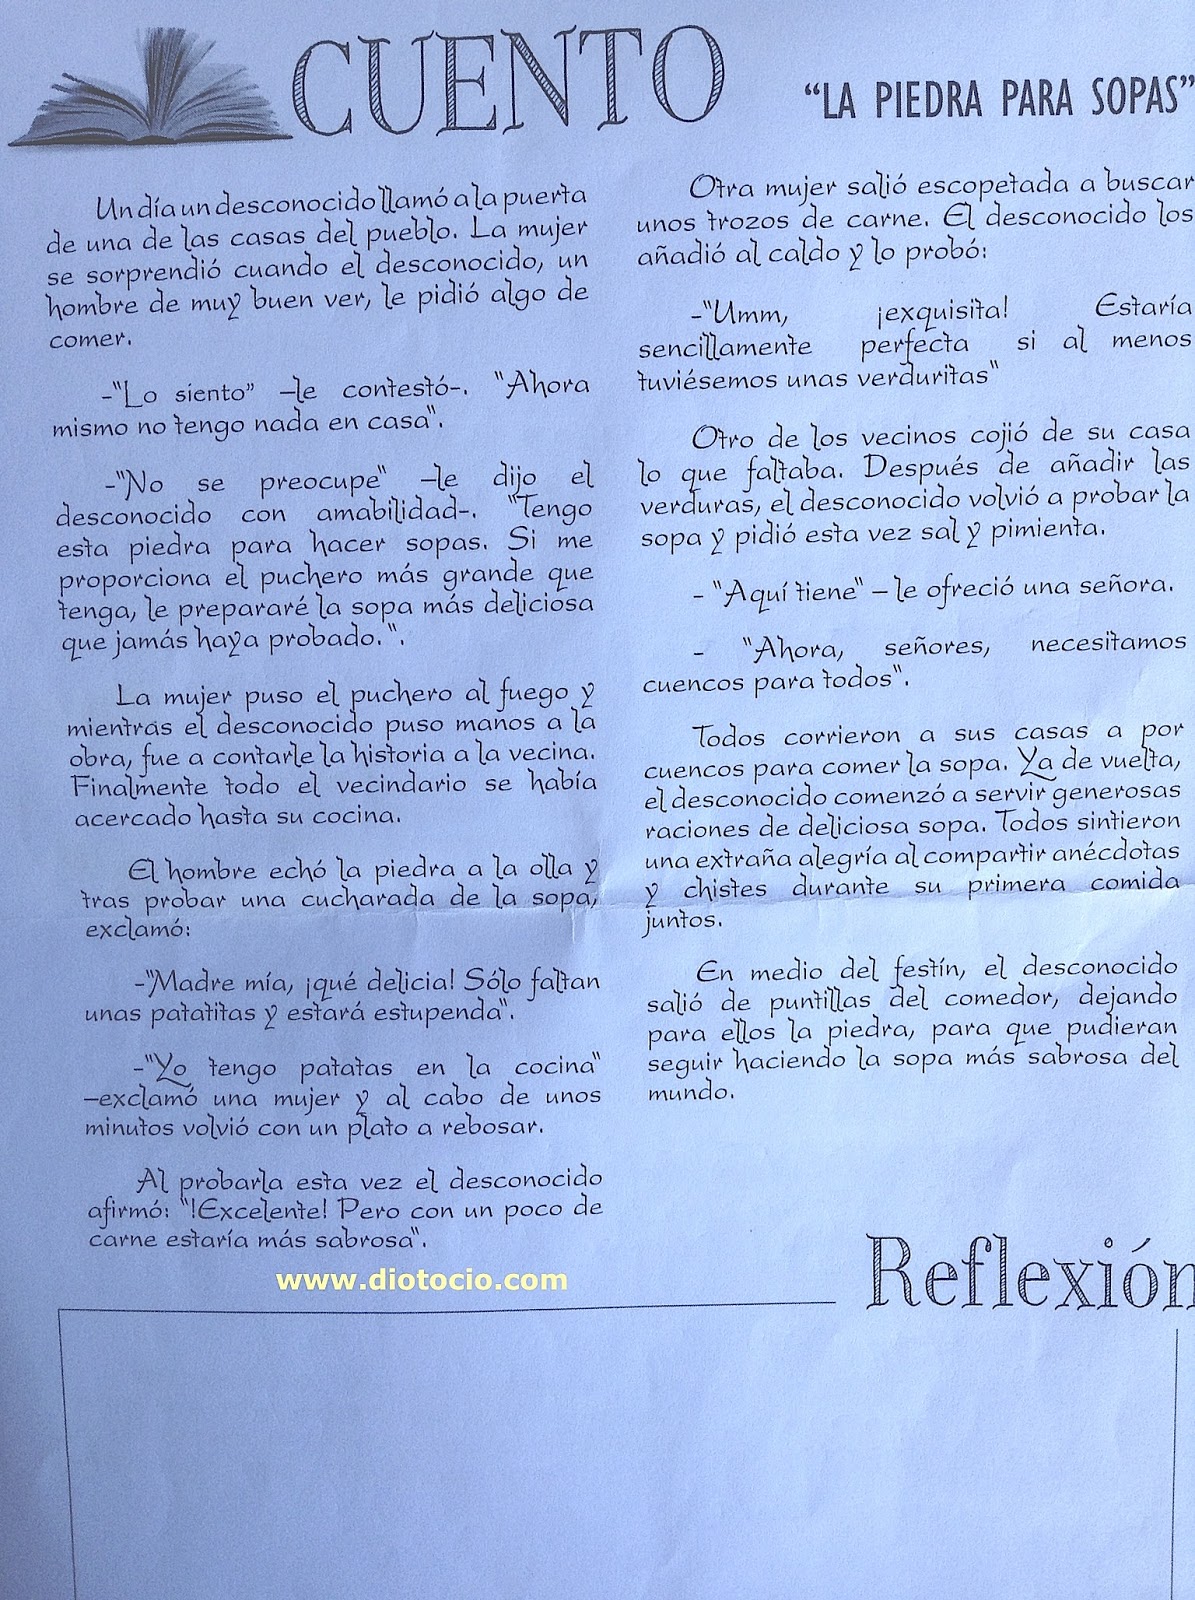 CUENTO
“LA PIEDRA PARA SOPAS”
Un día un desconocido llamó a la puerta
de una de las casas del pueblo. La mujer
se sorprendió cuando el desconocido, un
hombre de muy buen ver, le pidió algo de
comer.
-"Lo siento” –le contestó-. "Ahora
mismo no tengo nada en casa".
-"No se preocupe" –le dijo el
desconocido con amabilidad-. "Tengo
esta piedra para hacer sopas. Si me
proporciona el puchero más grande que
tenga, le prepararé la sopa más deliciosa
que jamás haya probado.".
La mujer puso el puchero al fuego y
mientras el desconocido puso manos a la
obra, fue a contarle la historia a la vecina.
Finalmente todo el vecindario se había
acercado hasta su cocina.
El hombre echó la piedra a la olla y
tras probar una cucharada de la sopa,
exclamó:
-"Madre mía, ¡qué delicia! Sólo faltan
unas patatitas y estará estupenda".
-"Yo tengo patatas en la cocina"
–exclamó una mujer y al cabo de unos
minutos volvió con un plato a rebosar.
Al probarla esta vez el desconocido
afirmó: "!Excelente! Pero con un poco de
carne estaría más sabrosa".
Otra mujer salió escopetada a buscar
unos trozos de carne. El desconocido los
añadió al caldo y lo probó:
-"Umm, ¡exquisita! Estaría
sencillamente perfecta si al menos
tuviésemos unas verduritas"
Otro de los vecinos cojió de su casa
lo que faltaba. Después de añadir las
verduras, el desconocido volvió a probar la
sopa y pidió esta vez sal y pimienta.
- "Aquí tiene" – le ofreció una señora.
- "Ahora, señores, necesitamos
cuencos para todos".
Todos corrieron a sus casas a por
cuencos para comer la sopa. Ya de vuelta,
el desconocido comenzó a servir generosas
raciones de deliciosa sopa. Todos sintieron
una extraña alegría al compartir anécdotas
y chistes durante su primera comida
juntos.
En medio del festín, el desconocido
salió de puntillas del comedor, dejando
para ellos la piedra, para que pudieran
seguir haciendo la sopa más sabrosa del
mundo.
www.diotocio.com
Reflexión